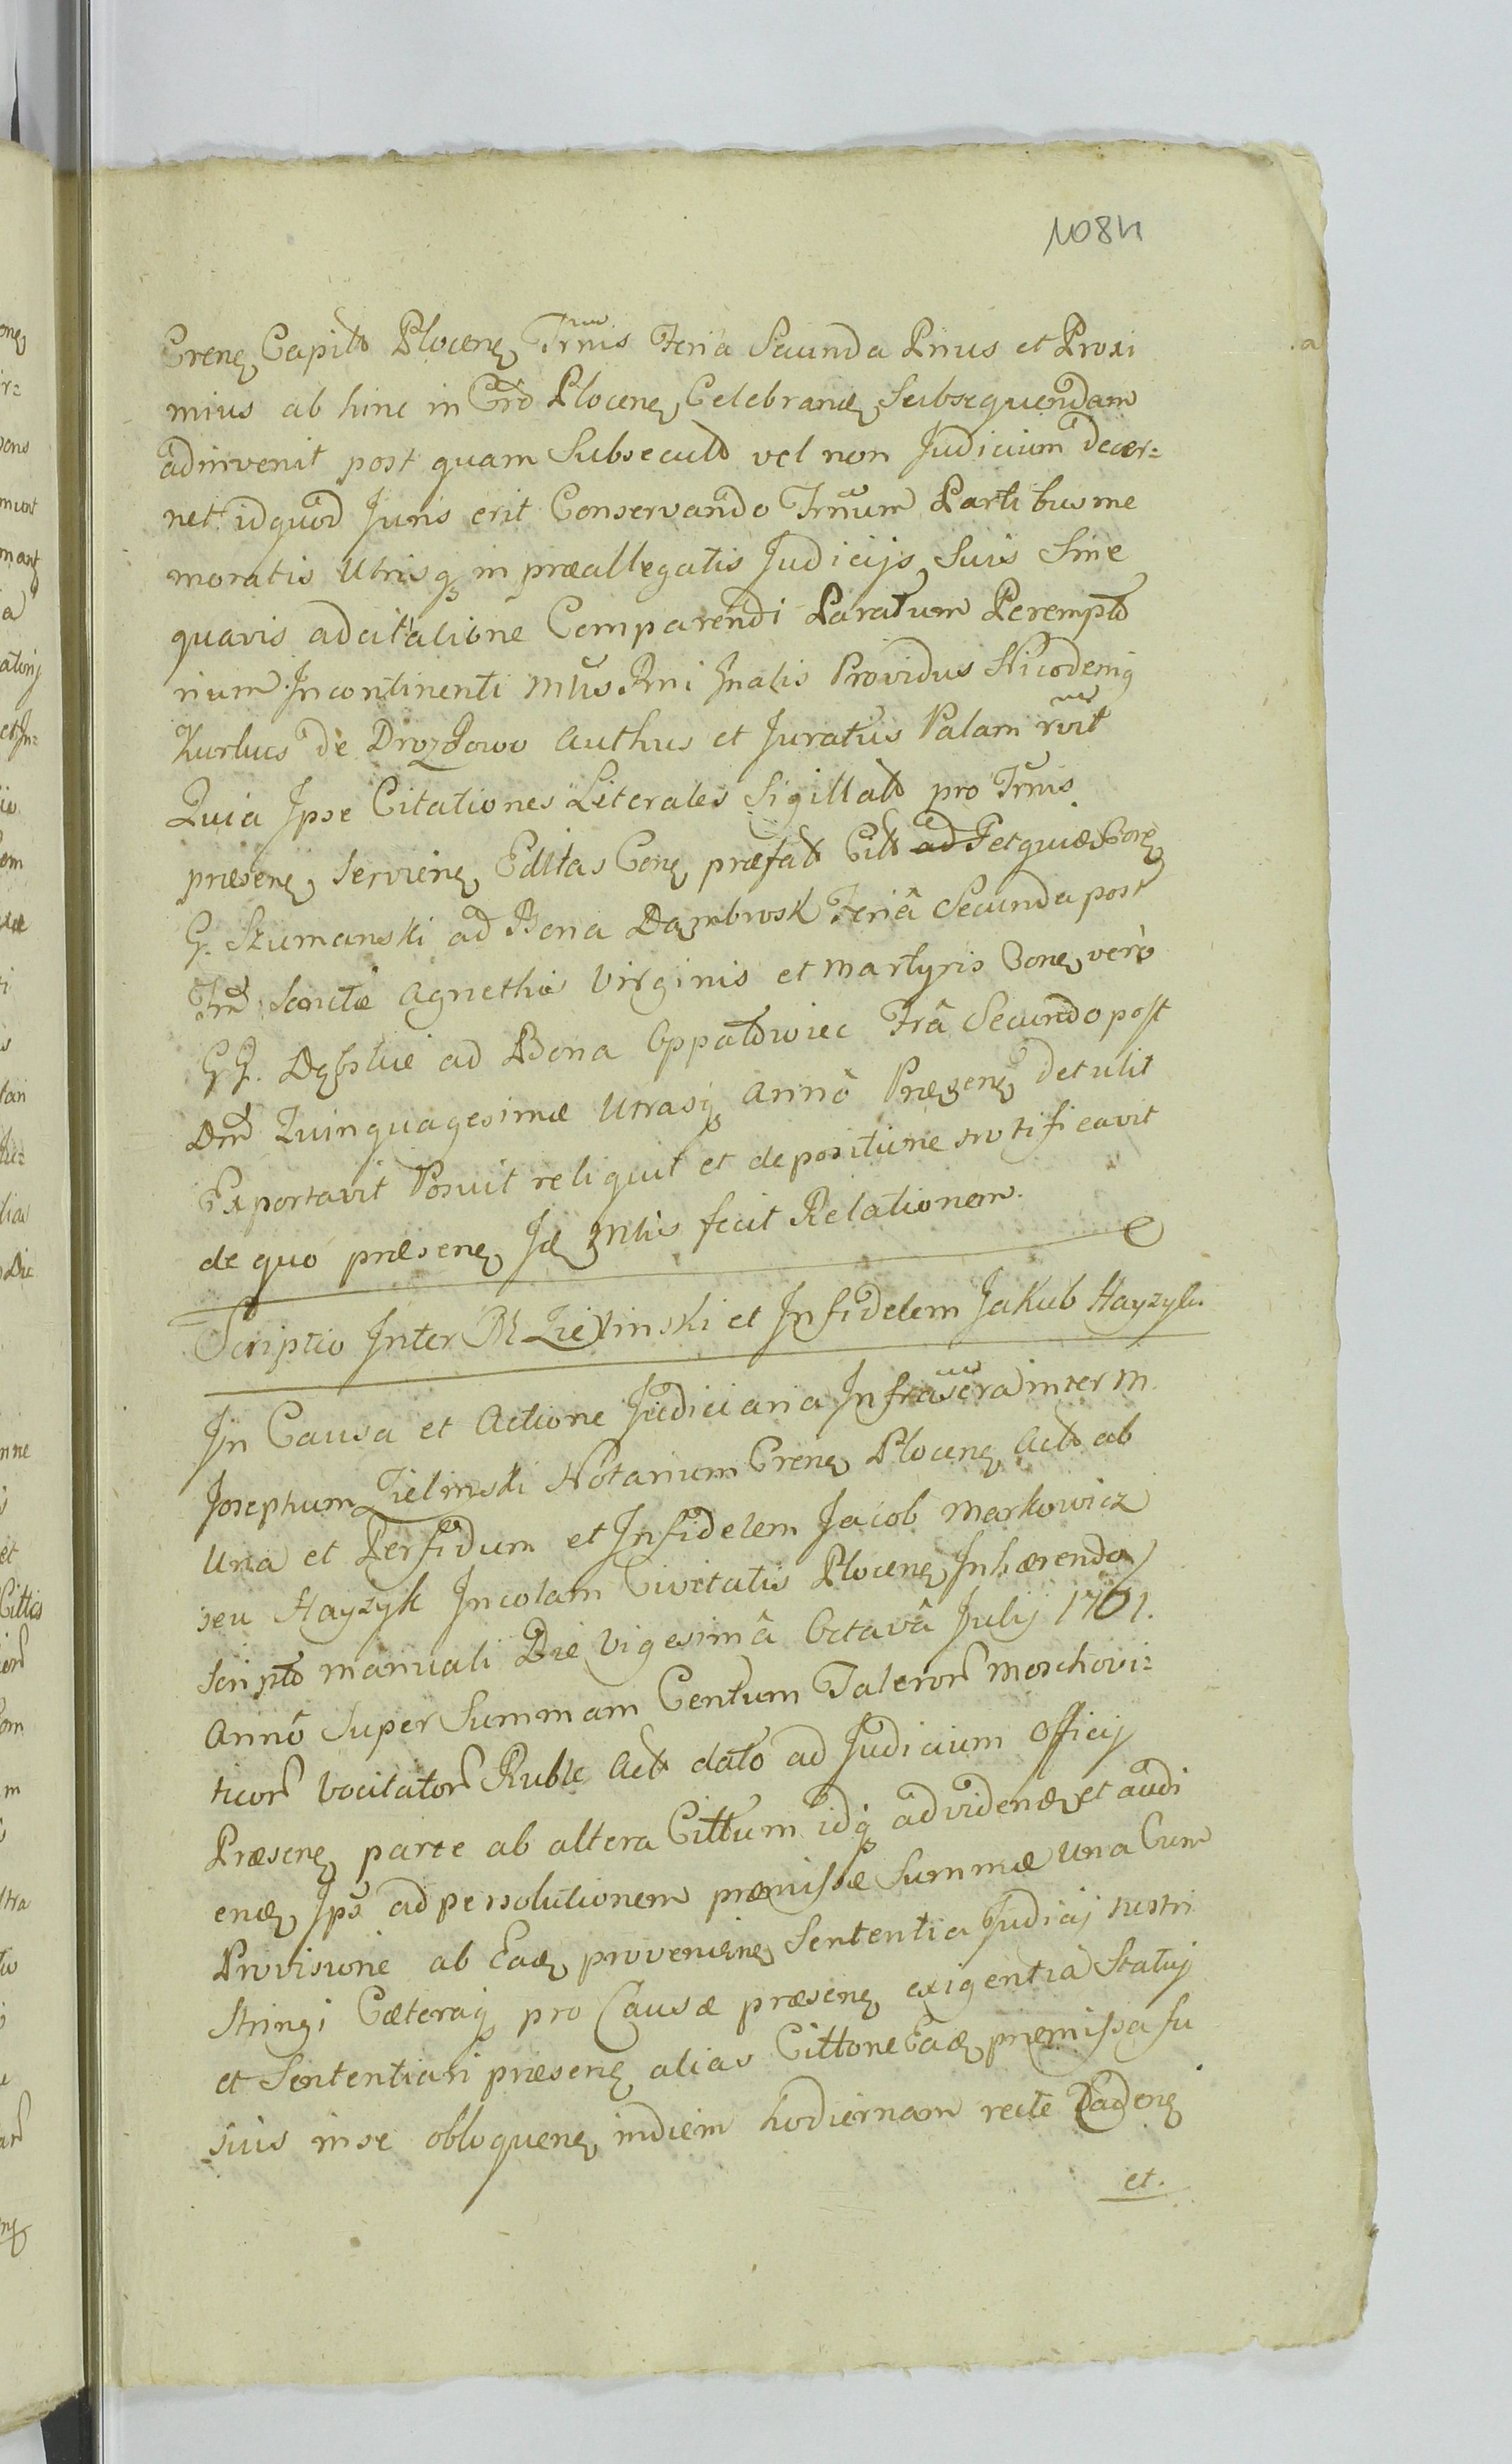 1084
Crenẹ Capitto Plocenẹ Trmis Feria Secunda Prius et Proxi
mius ab hinc in Crô Plocenẹ Celebranđ Subsequendam
adinvenit post quam Subsecutto vel non Judicium decer=
net idquod Juris erit Conservando Trmum Partibus me
moratis Utrisq in præallegatis Judicijs Suis Sine
quavis adcitatione Comparendi Paratum Perempto
rium. Incontinenti Mlis Rni Gnalis Providus Nicodemg
Kurluis de Drozdowo Authus et Juratus Palam rvit
Quia Ipse Citationes Literales Sigillatt pro Trmis
præsenẹ, Servienẹ Editas Conẹ præfatt Citt Conẹ
G. Szumanski ad Bona Dąmbrosk Feriâ Secunda post
Fm Sanctæ Agnethis Virginis et Martyris Conẹ vero
GG. ad Bona Oppatowiec Frâ Secundo post
Dm Quinquagesimæ Utrasq Anno Præsenẹ detulit
Exportavit Posuit reliquit et depositione notificavit
de quo præsenẹ fecit Relationem.
Scriptio Inter M Zielinski et Infidelem Jakub Hayzyk.
In Causa et Actione Judiciaria Infrascra inter M.
Josephum Zielinski Notarium Crenẹ Plocenẹ Actt ab
Una et Perfidum et Infidelem Jacob Markowicz
seu Hayzyk Incolam Civitatis Plocenẹ Inhærendo
Scripto manuali Die Vigesimâ Octavâ Julij 1761.
Anno Super Summam Centum Taleror Moschovi=
ticor vocitator Ruble Actt dato ad Judicium Officij
Præsenẹ parte ab altera Cittum idq ad videnđ et audi
enđ Ips ad persolutionem præmissæ Summæ Una Cum
Provisione ab Eađ provenienẹ Sententia Judicij nostri
Stringi Cæteraq pro Causæ præsenẹ exigentia Statuj
et Sententiari præsenẹ alias Cittone Eađ præmissa fu
sius in se obloquenẹ in diem hodiernam recte Cadenẹ
et.